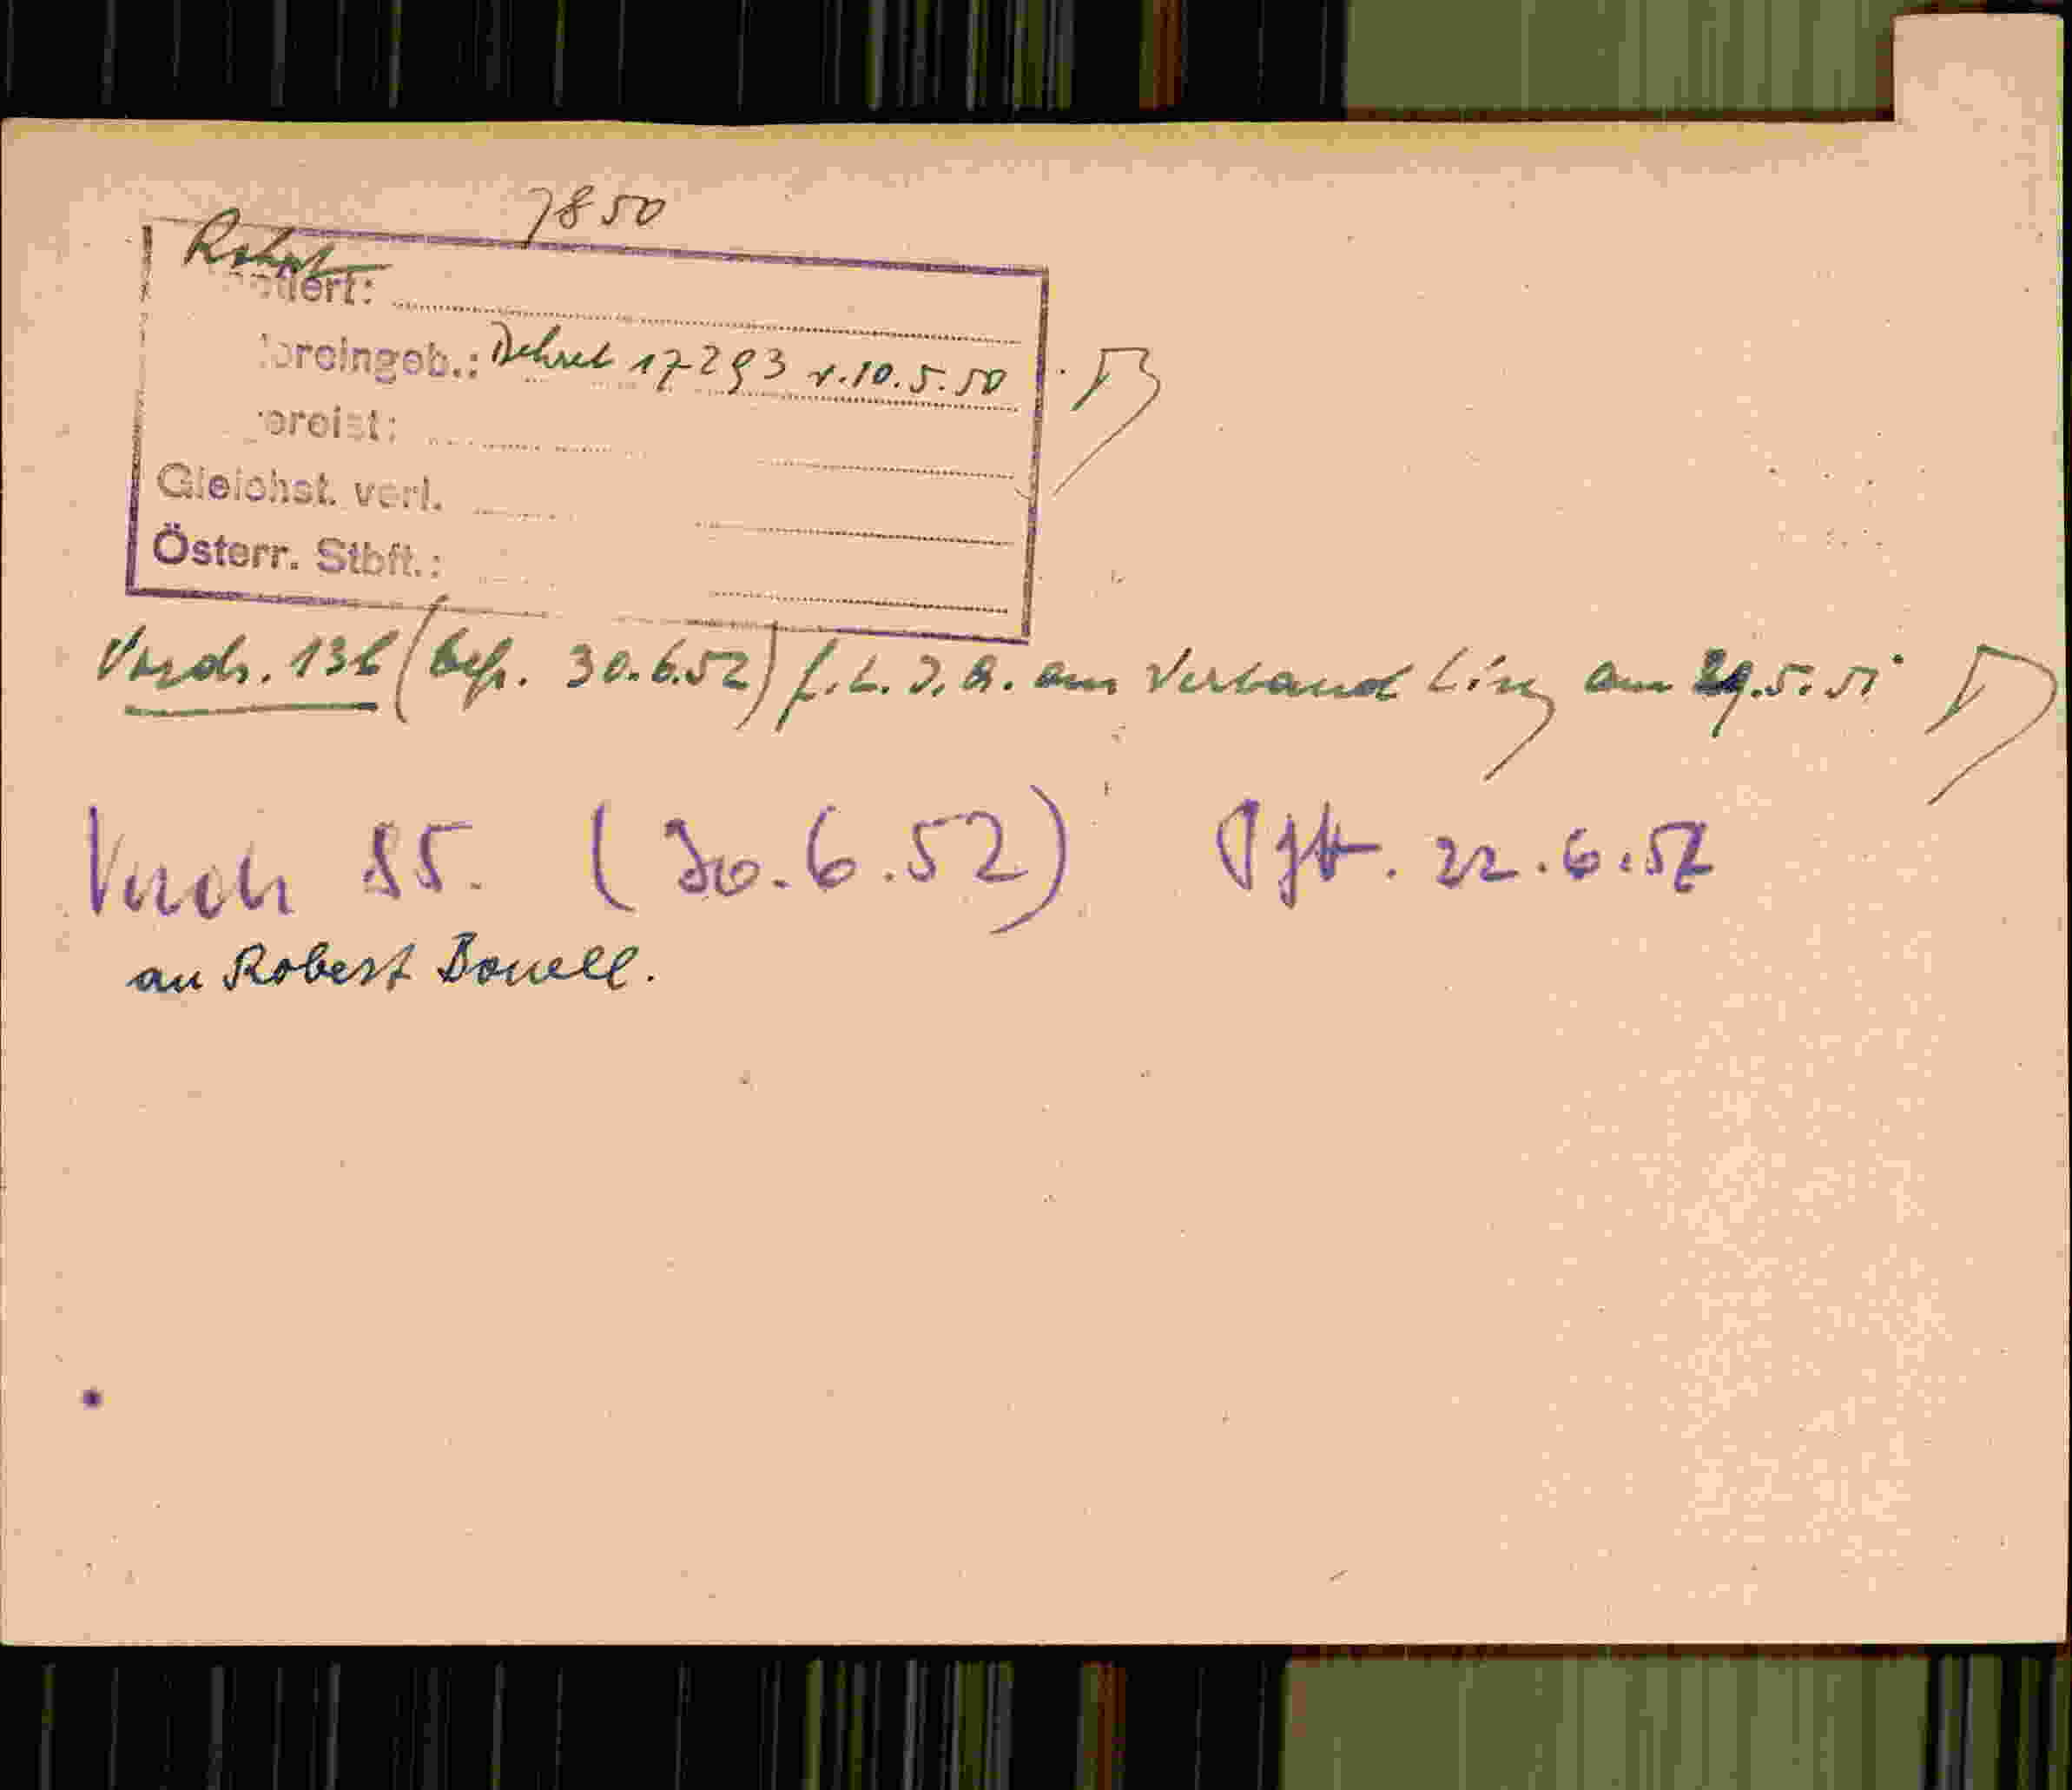 7850
Robert
tiert:
oreingeb.: Dekret 17293 v. 10.5.50
ereist:
Gleichst. verl.
Österr. Stbft.:
Vordr. 13b (bef. 30.6.52) f. L. J. A. am Verband Linz am 29.5.51
Vordr 55. (30.6.52) 22.6.52
an Robert Bonell.